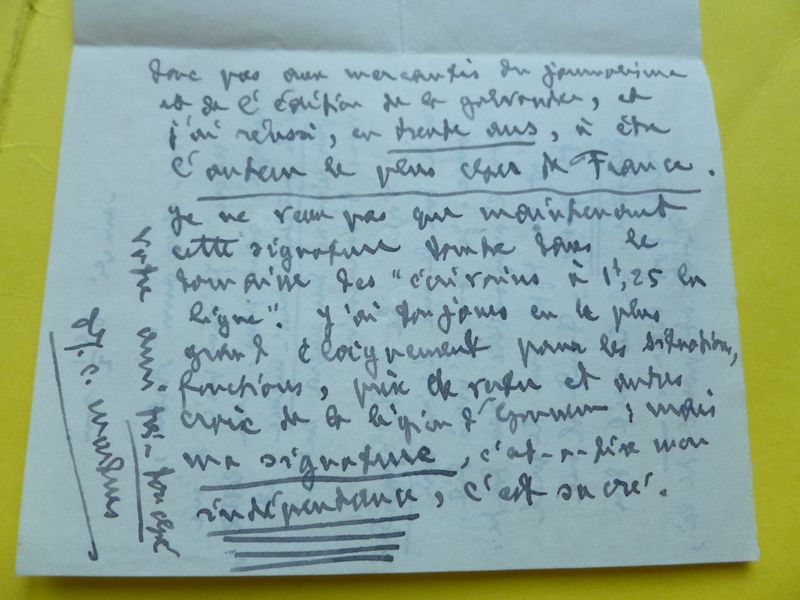 donc pas aux mercantis du journalisme
et de l'édition de la galvauder, et
j'ai réussi, en trente ans, à être
l'auteur le plus cher de France.
Je ne veux pas que maintenant
cette signature tombe dans le
domaine des "écrivains à 1f,25 la
ligne". J'ai toujours eu le plus
grand éloignement pour les situations,
fonctions, prix de vertu et autres
croix de la légion d'honneur; mais
ma signature, c'est-à-dire mon
indépendance, c'est sacré.
votre ami
J.C. Mardrus